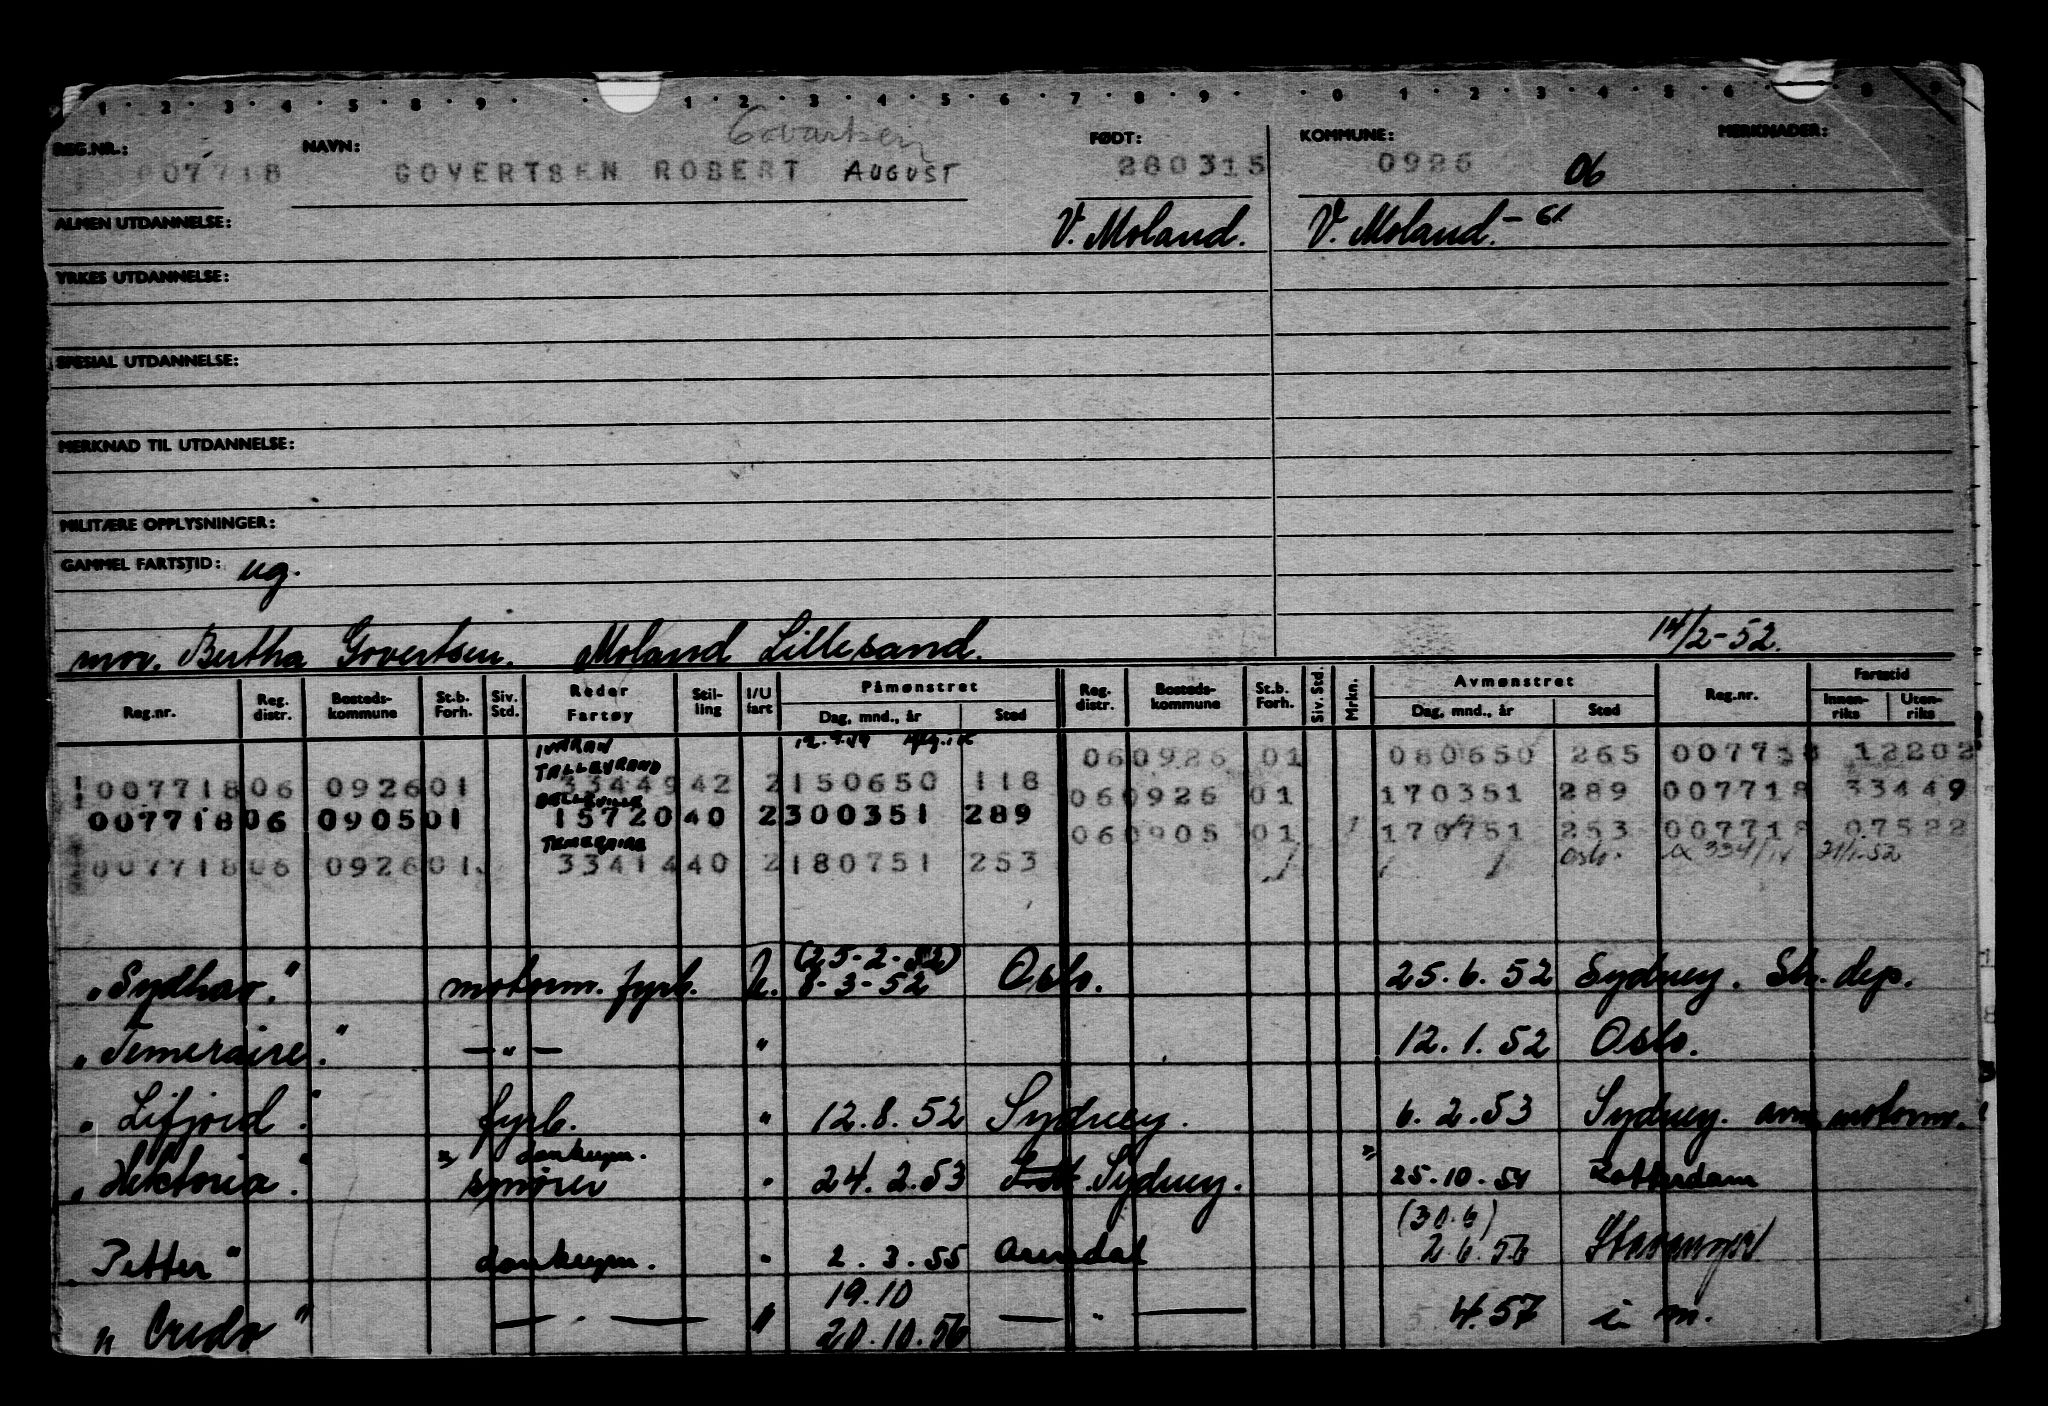 1 · 2 · 3 · 4 · 5 · 8 · 9 · · 1 · 2 · 3 · 4 · 5 · 6 · 7 · 8 · 9 · · 0 · 1 · 2 · 3 · 4 · 5 · 6 · 8 · 9
REG.NR.: NAVN: Govartsen FØDT: KOMMUNE: MERKNADER:
007718 GOVERTSEN ROBERT AUGUST 280315 0926 06
ALMEN UTDANNELSE: V. Moland. V. Moland. - 61
YRKES UTDANNELSE:
SPESIAL UTDANNELSE:
MERKNAD TIL UTDANNELSE:
MILITÆRE OPPLYSNINGER:
GAMMEL FARTSTID: ug.
mor. Bertha Govertsen. Moland Lillesand. 14/2-52.
Reg.nr. Reg. distr. Bosteds-kommune St.b. Forh. Siv. Std. Reder Fartøy Stil-ling I/U fart Påmønstret Dag, mnd., år Sted Reg. distr. Bosteds-kommune St.b. Forh. Siv. Std. Mrkn. Avmønstret Dag, mnd., år Sted Reg.nr. Fartstid Innen-riks Uten-riks
06 0926 01 080650 265 007718 12202
TALLEYRAND
007718 06 0926 01 33449 42 2 150650 118 06 0926 01 170351 289 007718 33449
BELLEVILLE
007718 06 0905 01 15720 40 2 300351 289 06 0905 01 170751 253 007718 07522
TEMERAIRE
007718 06 0926 01 33414 40 2 180751 253 Oslo. 21/1-52
"Sydhav." motorm. fyrb. U. (25-2-52) 8-3-52 Oslo. 25.6.52 Sydney. Str. dep.
"Temeraire." — " — " 12.1.52 Oslo.
"Lifjord." fyrb. " 12.8.52 Sydney. 6.2.53 Sydney. avm. motorm.
"Hektoria." " donkeym. smører " 24.2.53 Sydney. " 25.10.54 Rotterdam
"Petter" donkeym. " 2.3.55 Arendal (30.6) 2.6.56 Stavanger
"Credo" — " — " 19.10 20.10.56 — " — 4.57 i m.